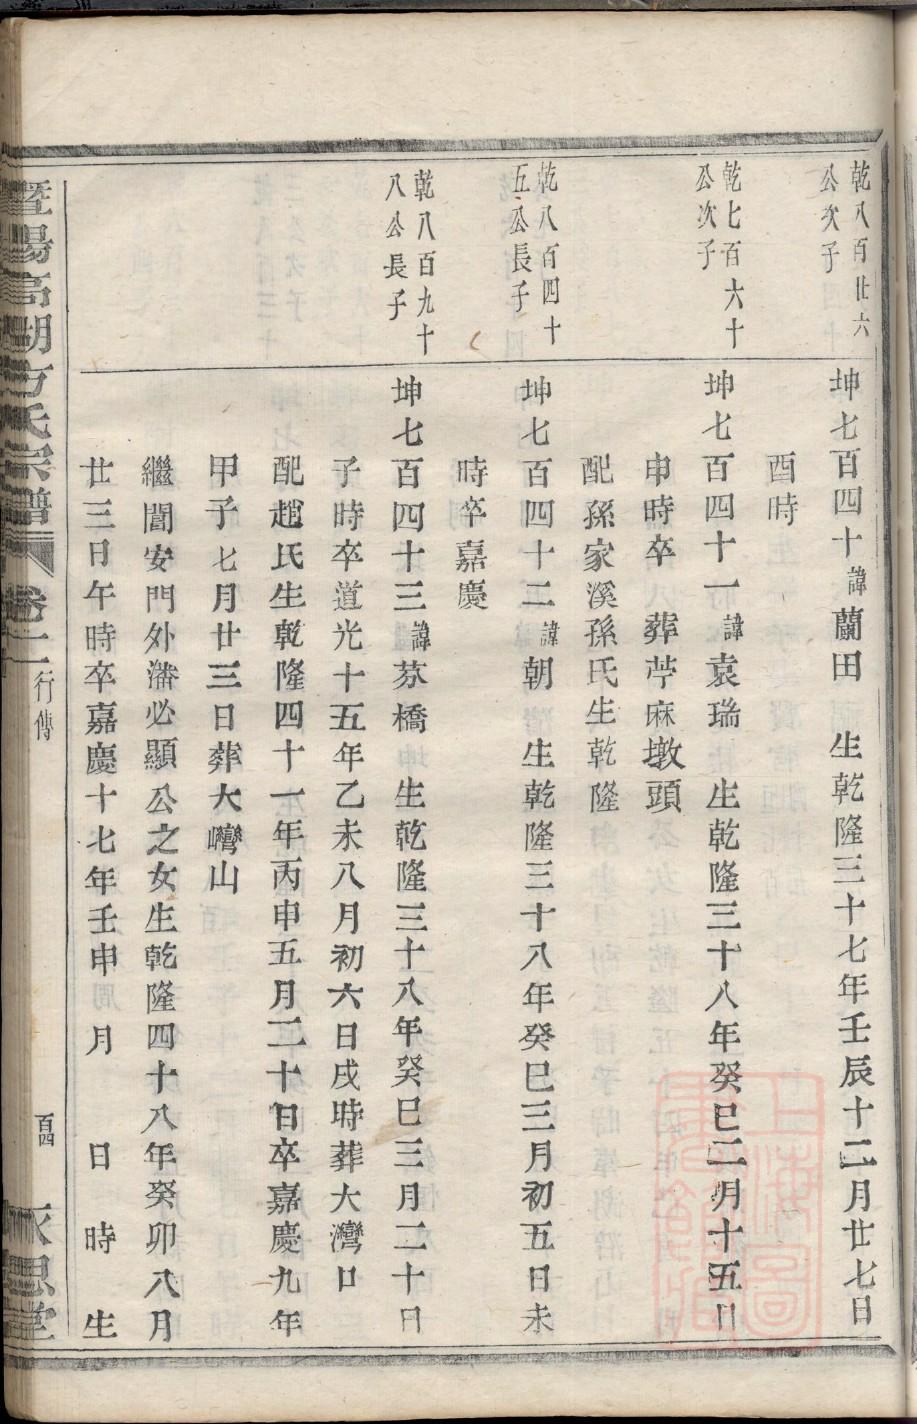 乾八百廿六
公次子
坤七百四十諱蘭田 生乾隆三十七年壬辰十二月廿七日
酉時
乾七百六十
公次子
坤七百四十一諱袁瑞 生乾隆三十八年癸巳二月十五日
申時卒 葬苧麻墩頭
配孫家溪孫氏生乾隆
乾八百四十
五公長子
坤七百四十二諱朝 生乾隆三十八年癸巳三月初五日未
時卒嘉慶
乾八百九十
八公長子
坤七百四十三諱芬橋生乾隆三十八年癸巳三月二十日
子時卒道光十五年乙未八月初六日戌時葬大灣口
配趙氏生乾隆四十一年丙申五月二十日卒嘉慶九年
甲子七月廿三日葬大巒山
繼閶安門外潘必顯公之女生乾隆四十八年癸卯八月
廿三日午時卒嘉慶十七年壬申 月 日 時 生
暨陽高湖方氏宗譜 卷二 行傳 百四 永思堂